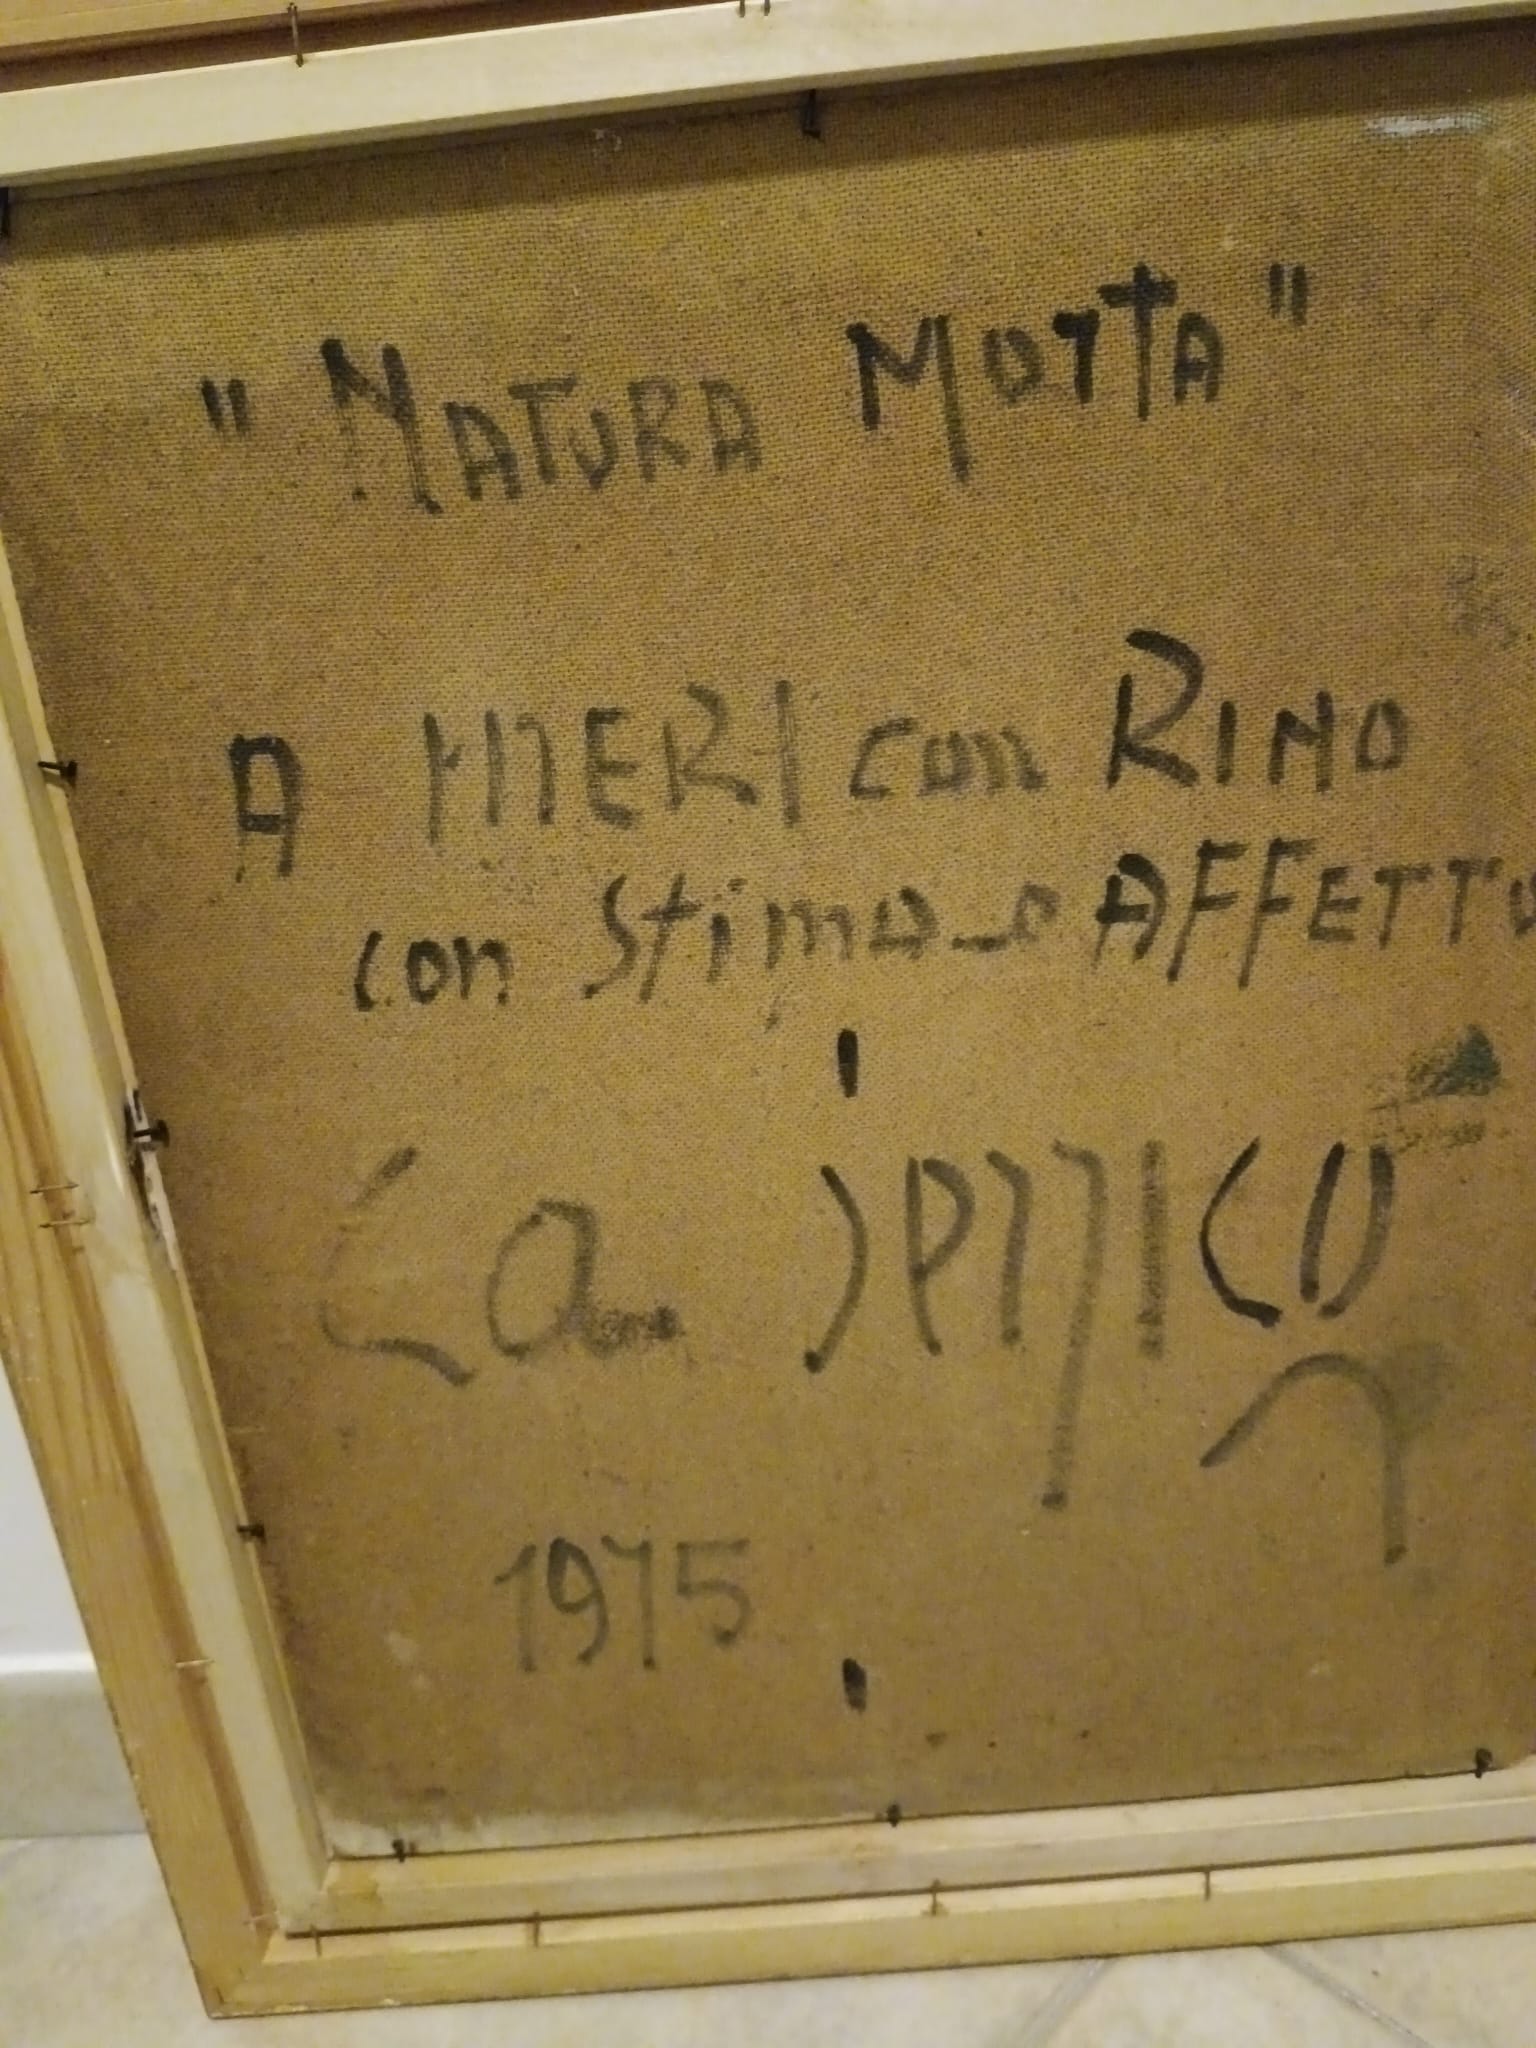 "NATURA MORTA"
A MERI con RINO
con Stima e AFFETTO
1975